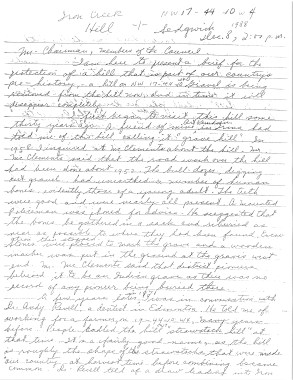 Iron Creek NW 17-44 10-4
Hill + Sedgwick 1988
Dec. 8, 2:00 p.m.
Mr. Chairman, members of the Council
I am here to present a brief for the
protection of a hill that is part of our country's
pre-history, a hill on NW 17-44 Gravel is being
removed from the hill now, and in time it will
disappear completely.
I first began to visit this hill some
thirty years ago. A friend of mine in had
told me of the hill calling it "grave hill". In
1958 I inquired at McClements about the hill. Mr.
McClements said that the road work over the hill
had been done about 1952. The bull dozer, digging
out gravel had unearthed a number of human
bones, evidently those of a young adult. The teeth
were good and were nearly all present. A mounted
Policeman was phoned for advice. He suggested that
the bones be gathered in a sack and reburied as
near as possible to where they had been found.
Stones were placed to mark the grave and a wooden
marker was put in the ground at the graves west
end. Mr. McClements said that district pioneers
believed it to be an Indian grave as there was no
record of any pioneer being buried there.
A few years later I was in conversation with
Dr. Andy Revell, a dentist in Edmonton. He told me of
working for a farmer, many years
before. People called the hill "strawstack hill" at
that time. It is a fairly good name, as the hill
is roughly the shape of the strawstacks that were made
in our country, at harvest time before combining became
common. Dr. Revell told of a draw leading into Iron